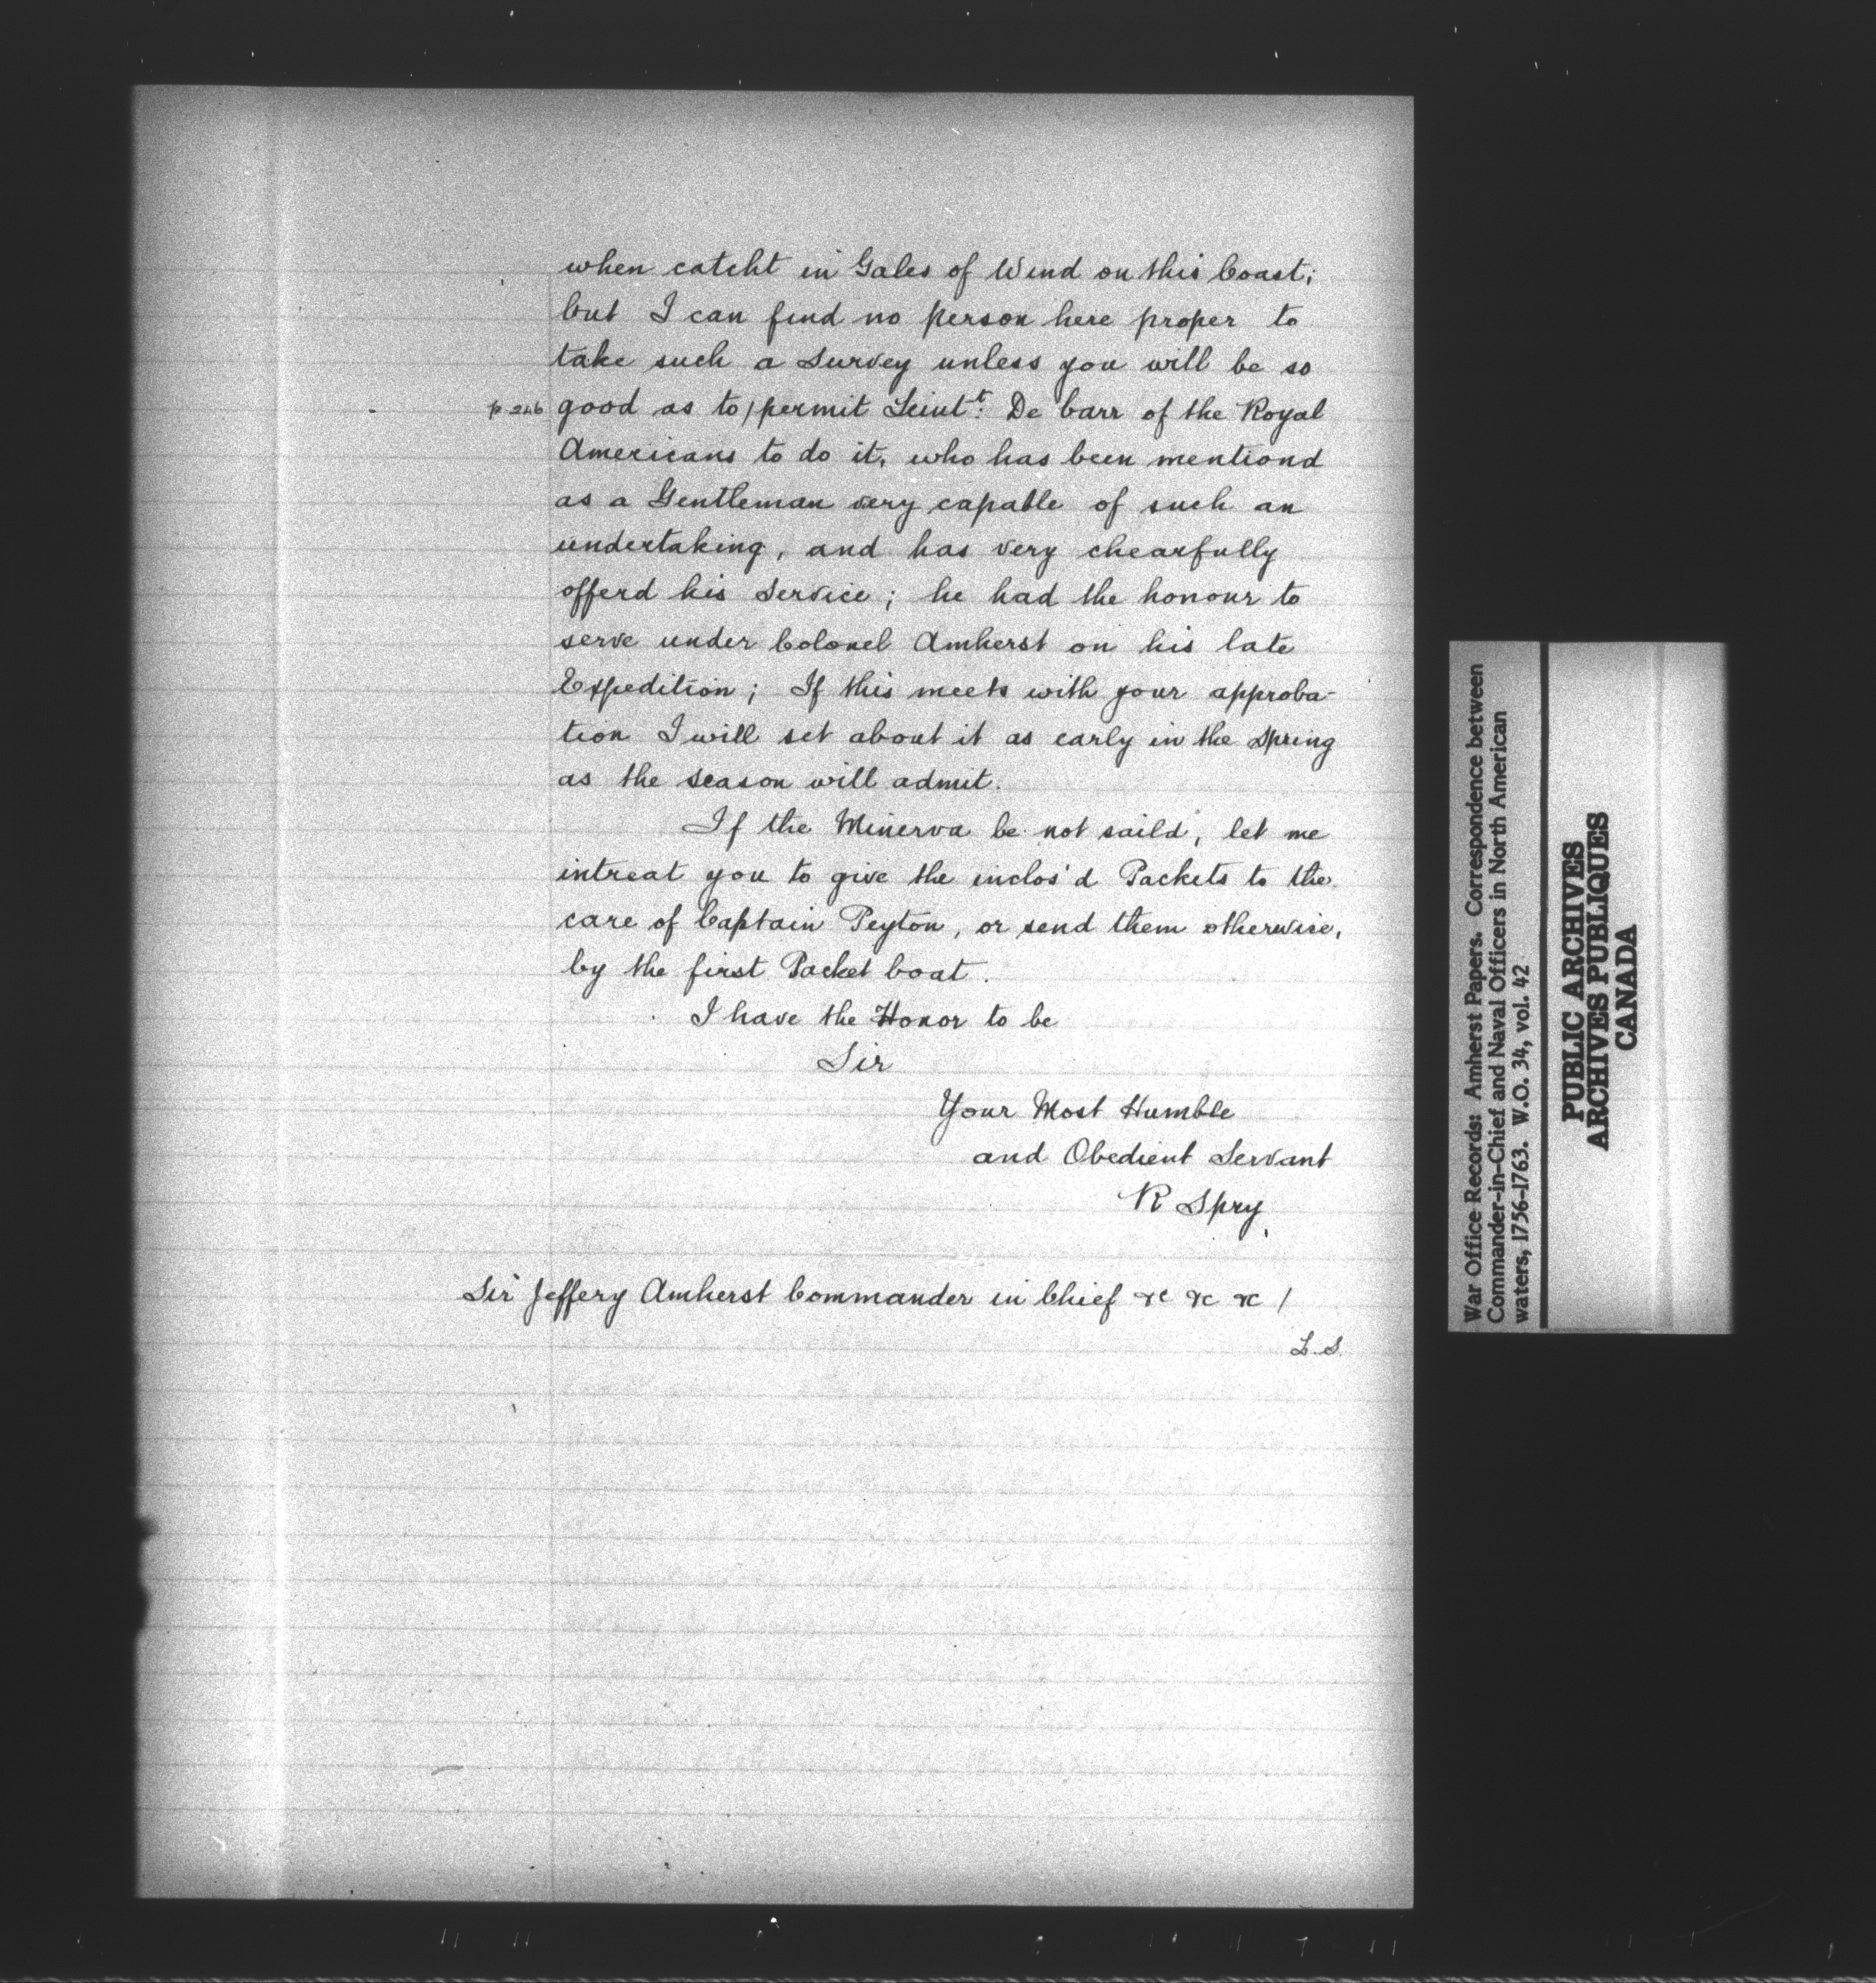 when catcht in Gales of Wind on this Coast;
but I can find no person here proper to
take such a Survey unless you will be so
p 246 good as to/permit Leiutt: De barr of the Royal
Americans to do it, who has been mentiond
as a Gentleman very capable of such an
undertaking, and has very chearfully
offerd his Service; he had the honour to
serve under Colonel Amherst on his late
Expedition; If this meets with your approba-
tion I will set about it as early in the Spring
as the Season will admit.
If the Minerva be not saild, let me
intreat you to give the inclos'd Packets to the
care of Captain Peyton, or send them otherwise,
by the first Packet boat.
I have the Honor to be
Sir
Your Most Humble
and Obedient Servant
R Spry
Sir Jeffery Amherst Commander in Chief &c &c &c /
L.S.
War Office Records: Amherst Papers. Correspondence between
Commander-in-Chief and Naval Officers in North American
waters, 1756-1763. W.O. 34, vol. 42
PUBLIC ARCHIVES
ARCHIVES PUBLIQUES
CANADA